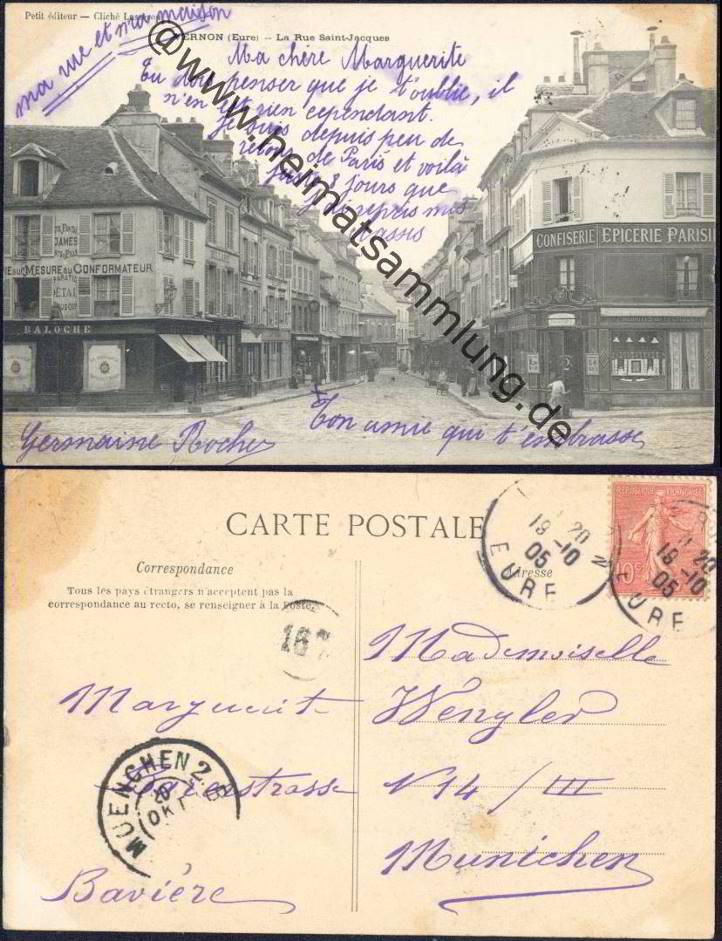 Petit éditeur — Cliché
VERNON (Eure) — La Rue Saint-Jacques
ma rue et ma maison
Ma chère Marguerite
Tu dois penser que je t'oublie, il
n'en est rien cependant.
Je suis depuis peu de
retour de Paris et voilà
3 jours que
j'ai repris mes
@www.heimatsammlung.de
JAMES
MESURE AU CONFORMATEUR
DÉTAIL
BALOCHE
CONFISERIE EPICERIE PARISI
2
Germaine Roche
Ton amie qui t'embrasse
CARTE POSTALE
Correspondance
Adresse
Tous les pays étrangers n'acceptent pas la
correspondance au recto, se renseigner à la Poste.
20
19-10
05
EURE
REPUBLIQUE FRANÇAISE
10c
20
19-10
05
EURE
167
Mademoiselle
Marguerit Wengler
strasse N 14 / III
MUENCHEN 2.B
OKT
Munichen
Bavière